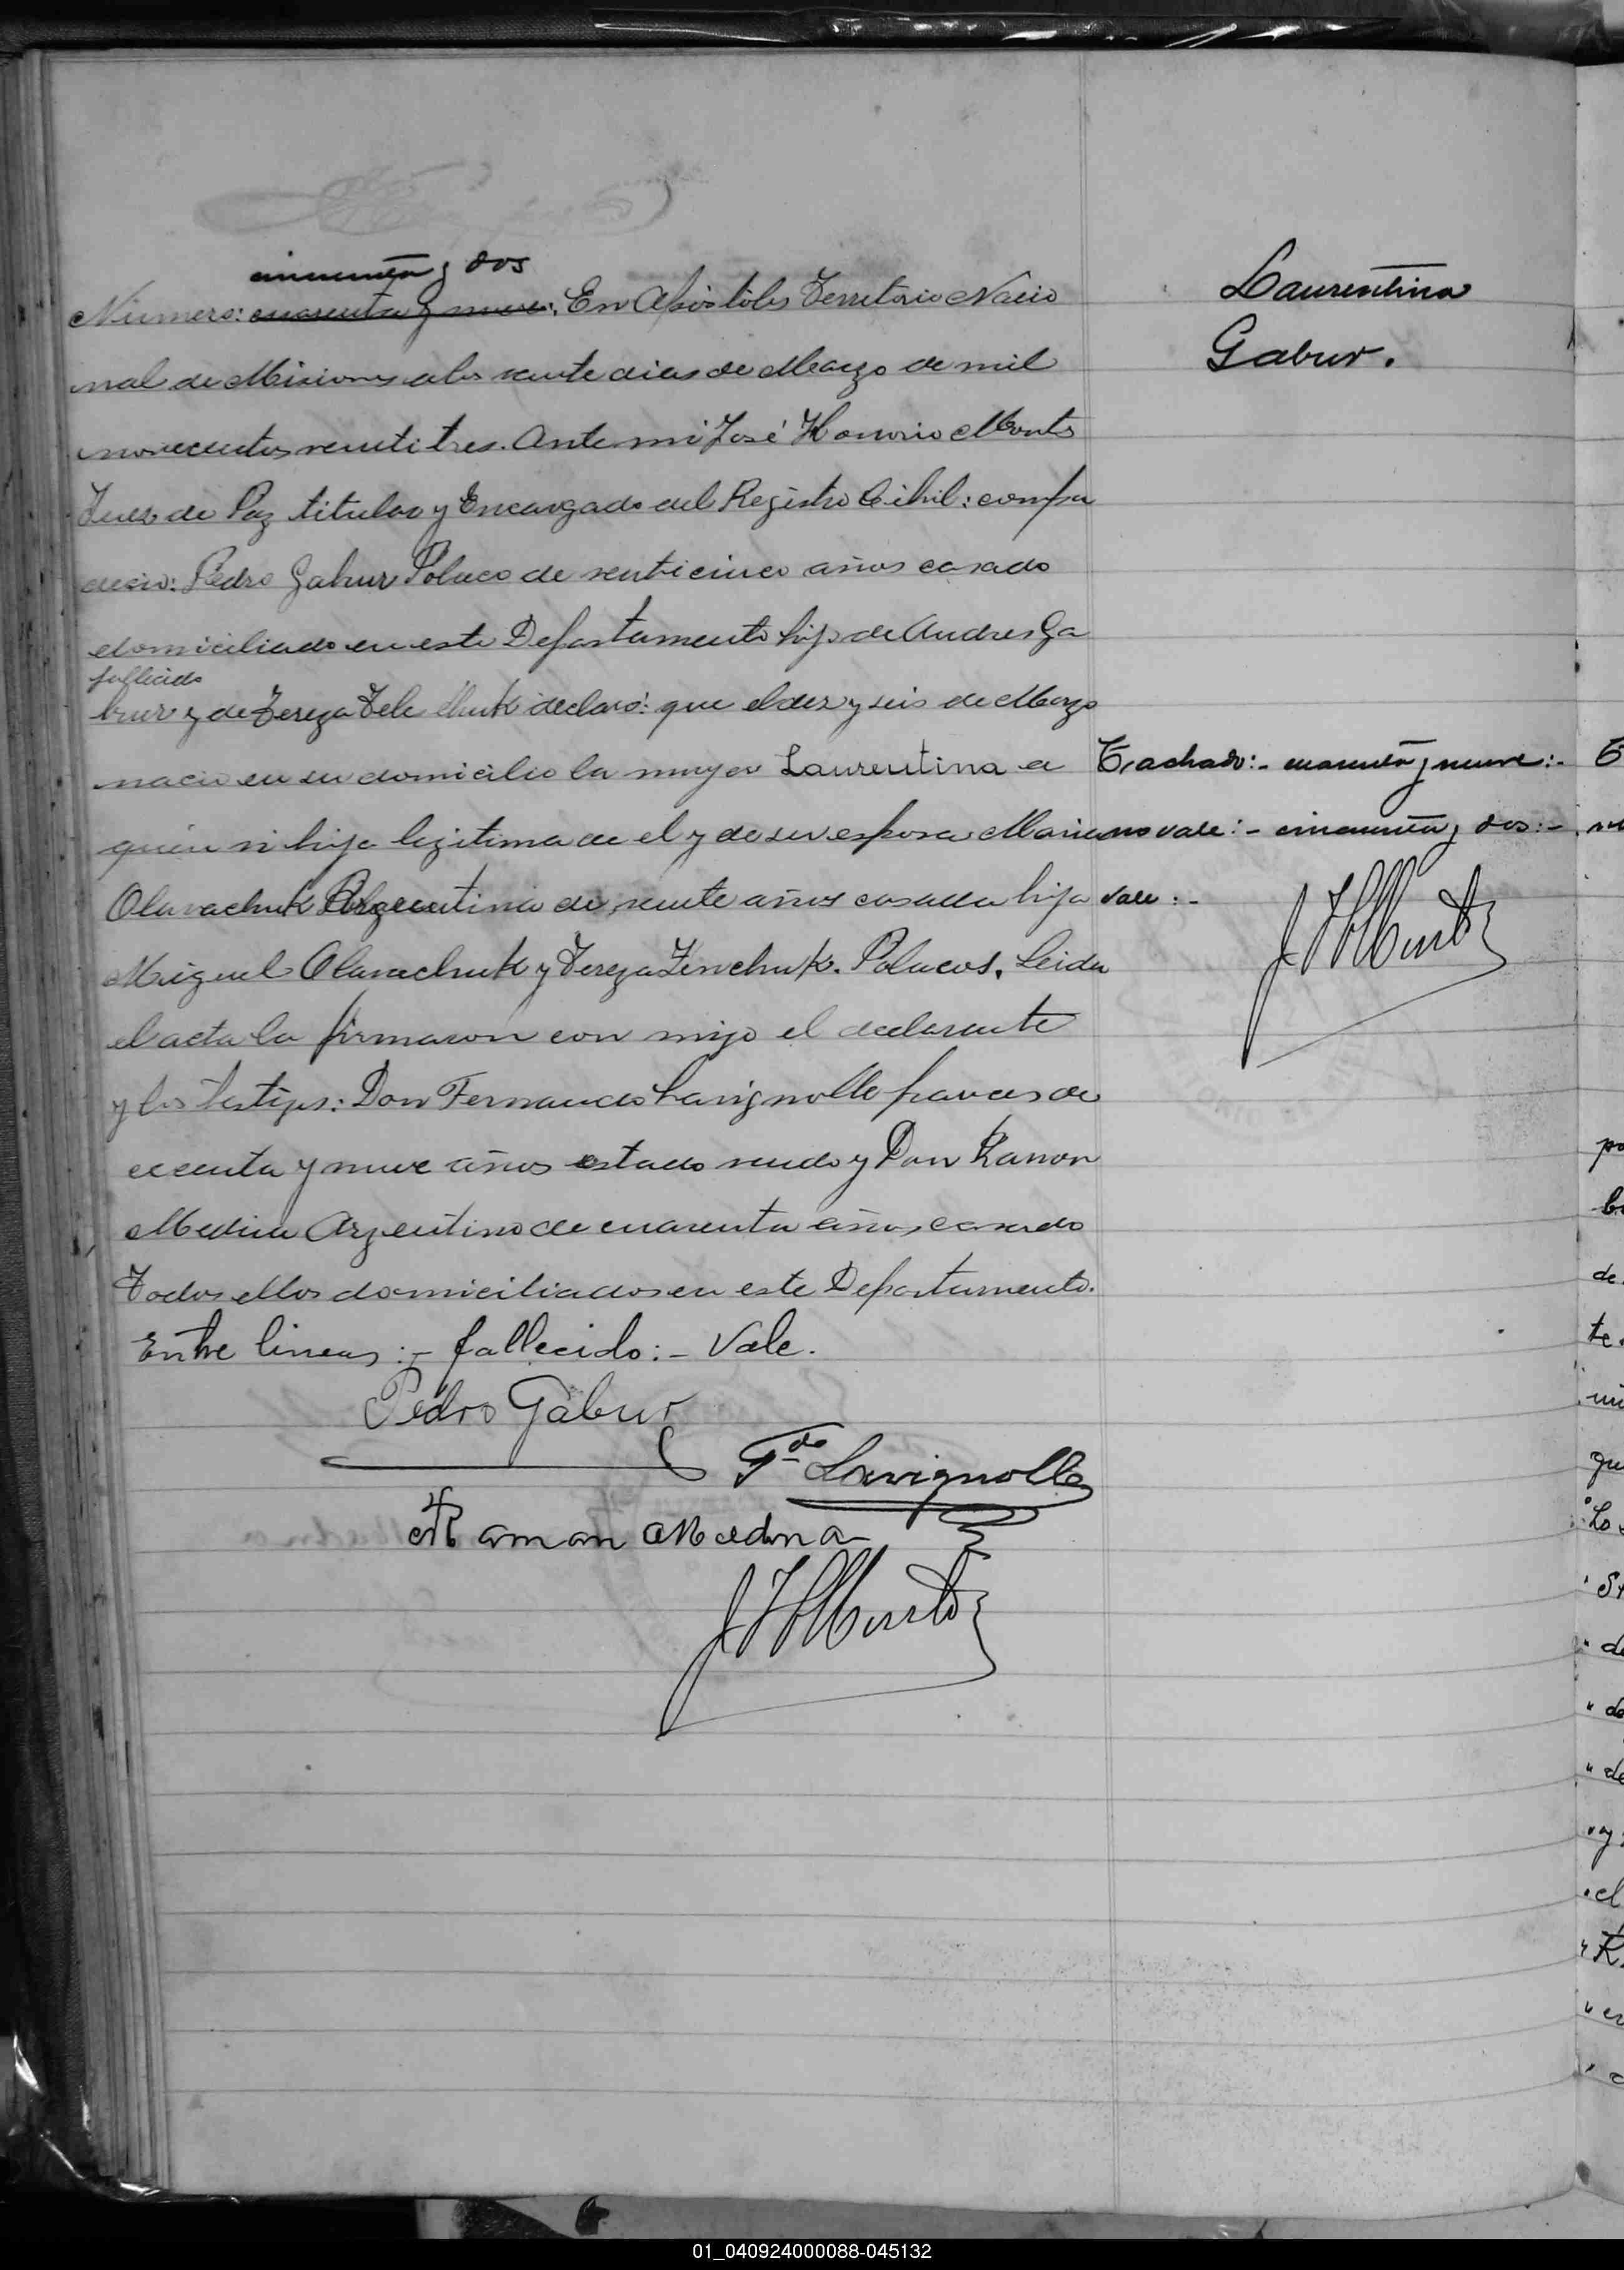 cincuenta y dos
Laurentina
Gabur.
Número: cuarenta y nueve: En Apóstoles Territorio Nacio
nal de Misiones a los veinte dias de Marzo de mil
novecientos veintitres. Ante mi José Honorio Monts
Juez de Paz titular y Encargado del Registro Cibil: compa
decio: Pedro Gabur Polaco de venticinco años casado
domiciliado en este Departamento hijo de Andres Ga
fallecido
bur y de Tereza declaró: que el dez y seis de Marzo
nacio en su domicilio la mujer Laurentina a
quien hija legitima de el y de su esposa Maria
Olavachuk Argentina de veinte años casada hija
Miguel Olavachuk y Tereza Zinchuk. Polacos. Leida
el acta la firmaron con migo el declarante
y los testigos: Don Fernando Lavignolle frances de
y nueve años estado viudo y Don Ramon
Medina Argentino de cuarenta años, casado
Todos ellos domiciliados en este Departamento.
Entre lineas:- fallecido:- Vale.
Tachado:- cuarenta y nueve:-
no vale:- cincuenta y dos:-
vale:-
Pedro Gabur
Fdo Lavignolle
Ramon Medina
01_040924000088-045132